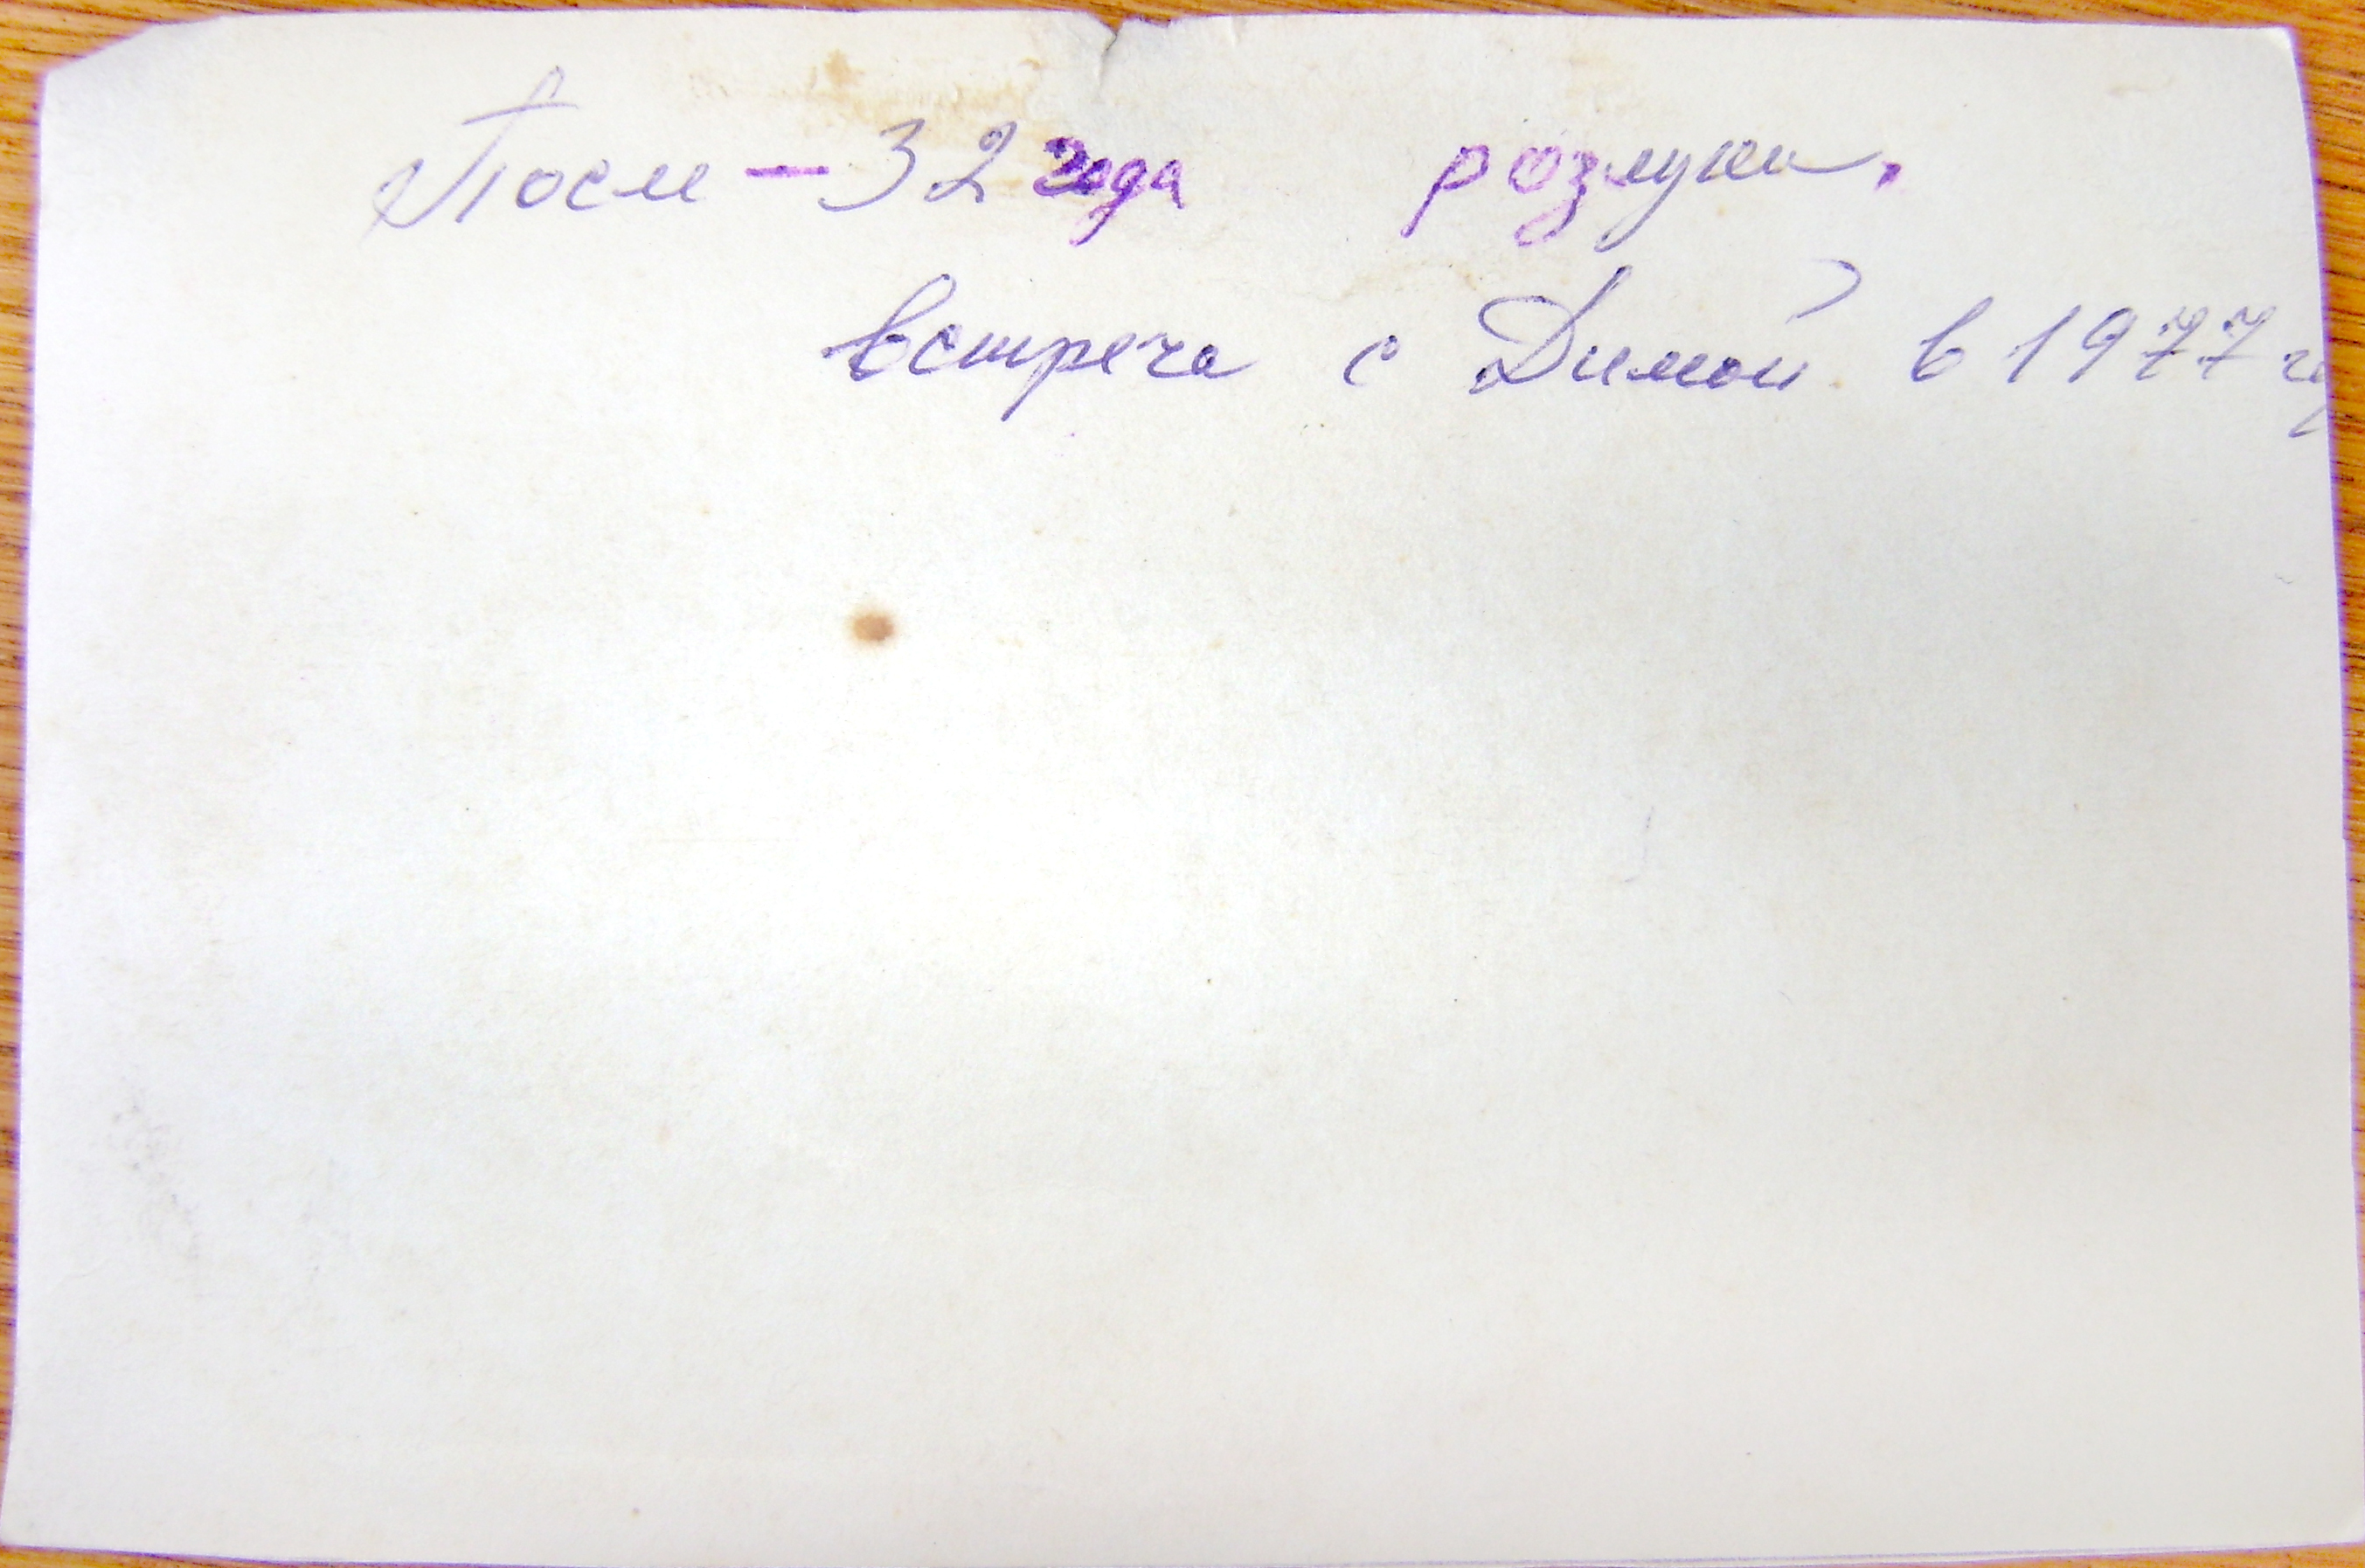 После — 32 года разлуки.
встреча с Димой в 1977 гу